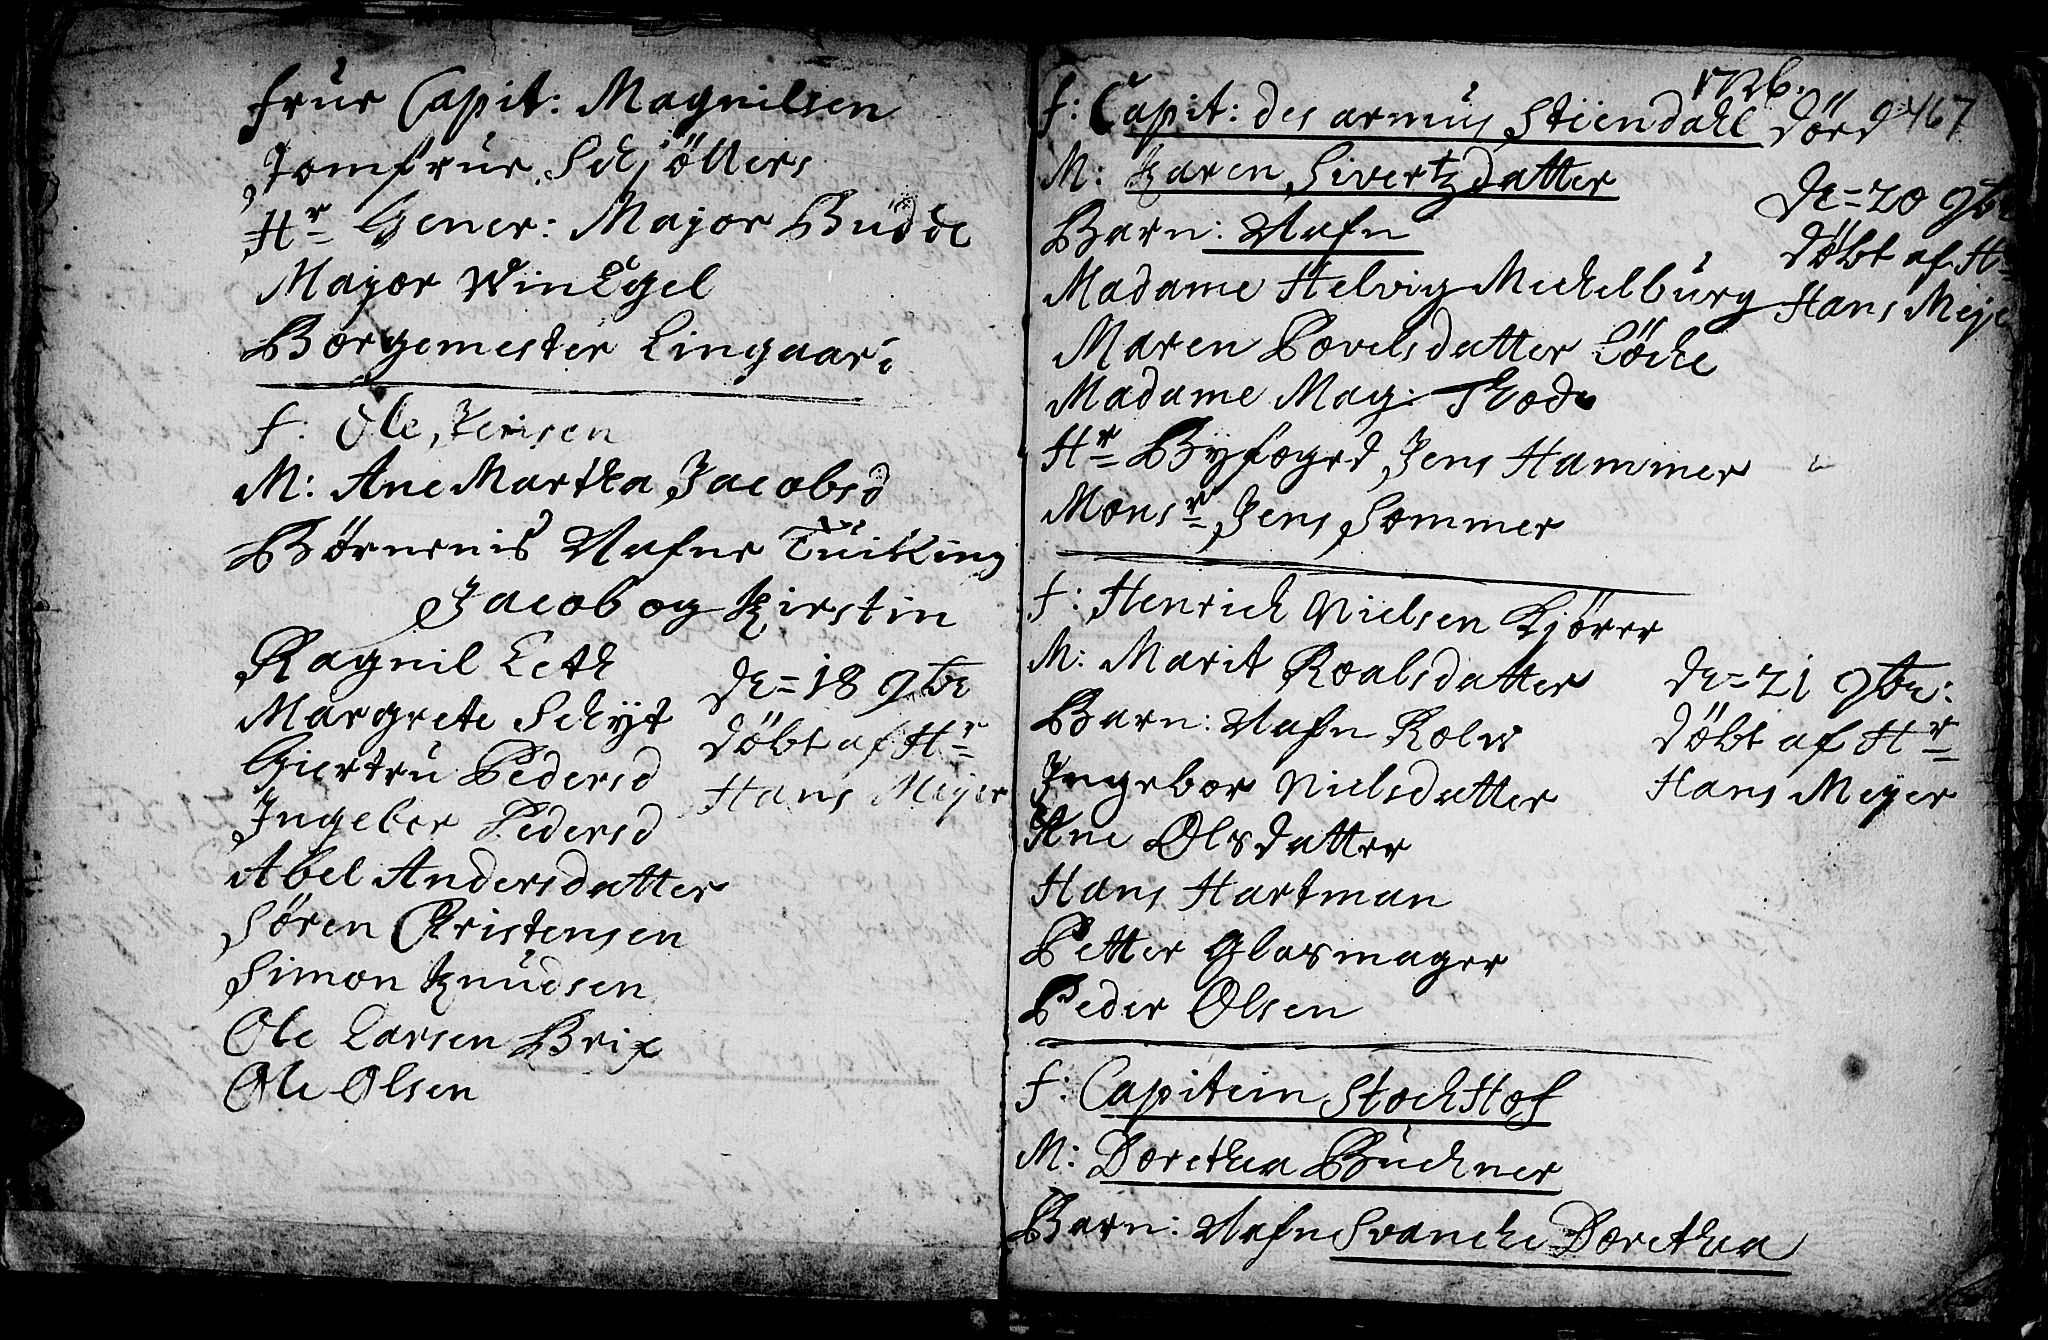 Frur Capit: Magnilsen
Jomfrur Schjötters
Hr Gener: Major Budde
Major WinEgel
Borgemester Lingaar
F: Ole Jensen
M: Ane Martha Jacobsd
Börnenis Nafne Tüilling
Jacob og Kirstin
Ragnil Leth
Margrete Schyt
Giertru Pedersd
Ingebor Pedersd
Abel Andersdatter
Sören Christensen
Simon Knudsen
Ole Larsen Brix
Ole Olsen
De = 18 9br
döbt af Hr
Hans Meyer
1726.
467
F: Capit: des armus Stüendahl
M: Karen Sivertzdatter
Barn: Nafn
Madame Helvig Mechelburg
Maren Povelsdatter Löche
Madame Mag: Thode
Hr Byfogrd Jens Hammer
Monsr Jens Sommer
död
De = 20 9br
döbt af Hr
Hans Meye
F: Henrich Nielsen Kjörer
M: Marit Roalsdatter
Barn: Nafn Rolv
Ingebor Nielsdatter
Ane Olsdatter
Hans Hartman
Petter Glasmager
Peder Olsen
De = 21 9br:
döbt af Hr
Hans Meyer
F: Capitein Stochhof
M: Dorethea Büchner
Barn: Nafn Svanche Dorethea